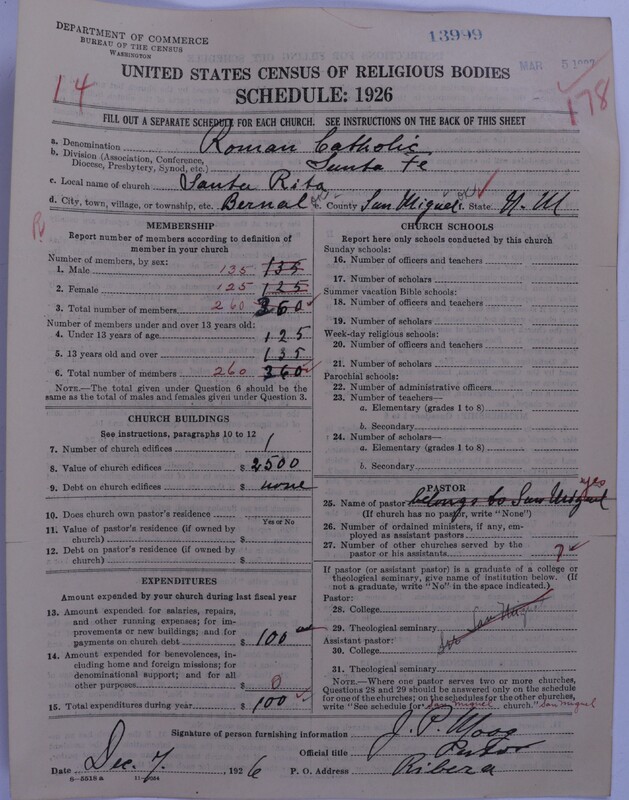 DEPARTMENT OF COMMERCE
BUREAU OF THE CENSUS
WASHINGTON
13999
MAR 5 1927
UNITED STATES CENSUS OF RELIGIOUS BODIES
14
SCHEDULE: 1926
178
FILL OUT A SEPARATE SCHEDULE FOR EACH CHURCH. SEE INSTRUCTIONS ON THE BACK OF THIS SHEET
a. Denomination Roman Catholic
b. Division (Association, Conference, Diocese, Presbytery, Synod, etc.) Santa Fe
c. Local name of church Santa Rita
d. City, town, village, or township, etc. Bernal e. County San Miguel f. State N. M
R
MEMBERSHIP
Report number of members according to definition of
member in your church
Number of members, by sex:
1. Male 135 135
2. Female 125 125
3. Total number of members 260 260
Number of members under and over 13 years old:
4. Under 13 years of age 125
5. 13 years old and over 135
6. Total number of members 260 260
NOTE.—The total given under Question 6 should be the
same as the total of males and females given under Question 3.
CHURCH BUILDINGS
See instructions, paragraphs 10 to 12
7. Number of church edifices 1
8. Value of church edifices $ 2500
9. Debt on church edifices $ none
10. Does church own pastor's residence
Yes or No
11. Value of pastor's residence (if owned by
church) $
12. Debt on pastor's residence (if owned by
church) $
EXPENDITURES
Amount expended by your church during last fiscal year
13. Amount expended for salaries, repairs,
and other running expenses; for im-
provements or new buildings; and for
payments on church debt $ 100
14. Amount expended for benevolences, in-
cluding home and foreign missions; for
denominational support; and for all
other purposes $ 0
15. Total expenditures during year $ 100
CHURCH SCHOOLS
Report here only schools conducted by this church
Sunday schools:
16. Number of officers and teachers
17. Number of scholars
Summer vacation Bible schools:
18. Number of officers and teachers
19. Number of scholars
Week-day religious schools:
20. Number of officers and teachers
21. Number of scholars
Parochial schools:
22. Number of administrative officers
23. Number of teachers—
a. Elementary (grades 1 to 8)
b. Secondary
24. Number of scholars—
a. Elementary (grades 1 to 8)
b. Secondary
PASTOR
yes
25. Name of pastor belongs to San Miguel
(If church has no pastor, write "None")
26. Number of ordained ministers, if any, em-
ployed as assistant pastors
27. Number of other churches served by the
pastor or his assistants 7
If pastor (or assistant pastor) is a graduate of a college or
theological seminary, give name of institution below. (If
not a graduate, write "No" in the space indicated.)
Pastor:
28. College
29. Theological seminary
See San Miguel
Assistant pastor:
30. College
31. Theological seminary
NOTE.—Where one pastor serves two or more churches,
Questions 28 and 29 should be answered only on the schedule
for one of the churches; on the schedules for the other churches,
write "See schedule for San Miguel church." San Miguel
Signature of person furnishing information J. P. Moog
Official title Pastor
Date Dec. 7, 1926 P. O. Address Ribera
8—5518 a